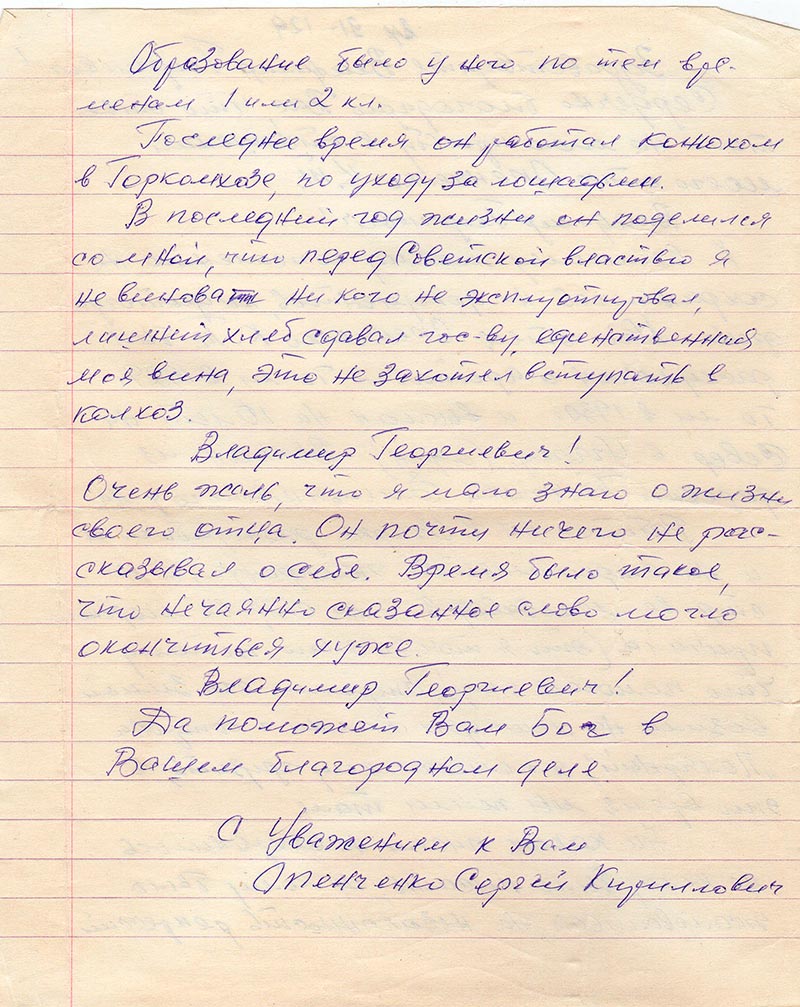 Образование было у него по тем вре-
менам 1 или 2 кл.
Последнее время он работал конюхом
в Горколхозе, по уходу за лошадьми.
В последний год жизни он поделился
со мной, что перед Советской властью я
не виноват ни кого не эксплуотировал,
лишний хлеб сдавал гос-ву, единственная
моя вина, это не захотел вступать в
колхоз.
Владимир Георгиевич!
Очень жаль, что я мало знаю о жизни
своего отца. Он почти ничего не рас-
сказывал о себе. Время было такое,
что нечаянно сказанное слово могло
окончиться хуже.
Владимир Георгиевич!
Да поможет Вам Бог в
Вашем благородном деле
С Уважением к Вам
Сергей Кириллович